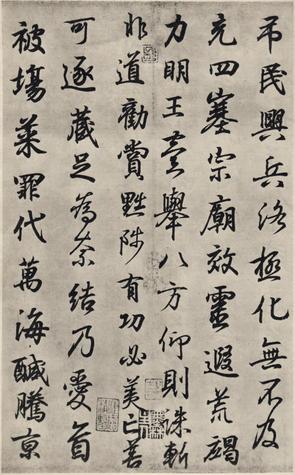 吊民興兵洛極化無不及
充四塞宗廟效靈遐荒竭
力明王臺舉八方仰則誅斬
非道勸賞黜陟有功必美亡善
可逐藏足為奈結乃愛首
被塲菜罪代萬海醎騰京